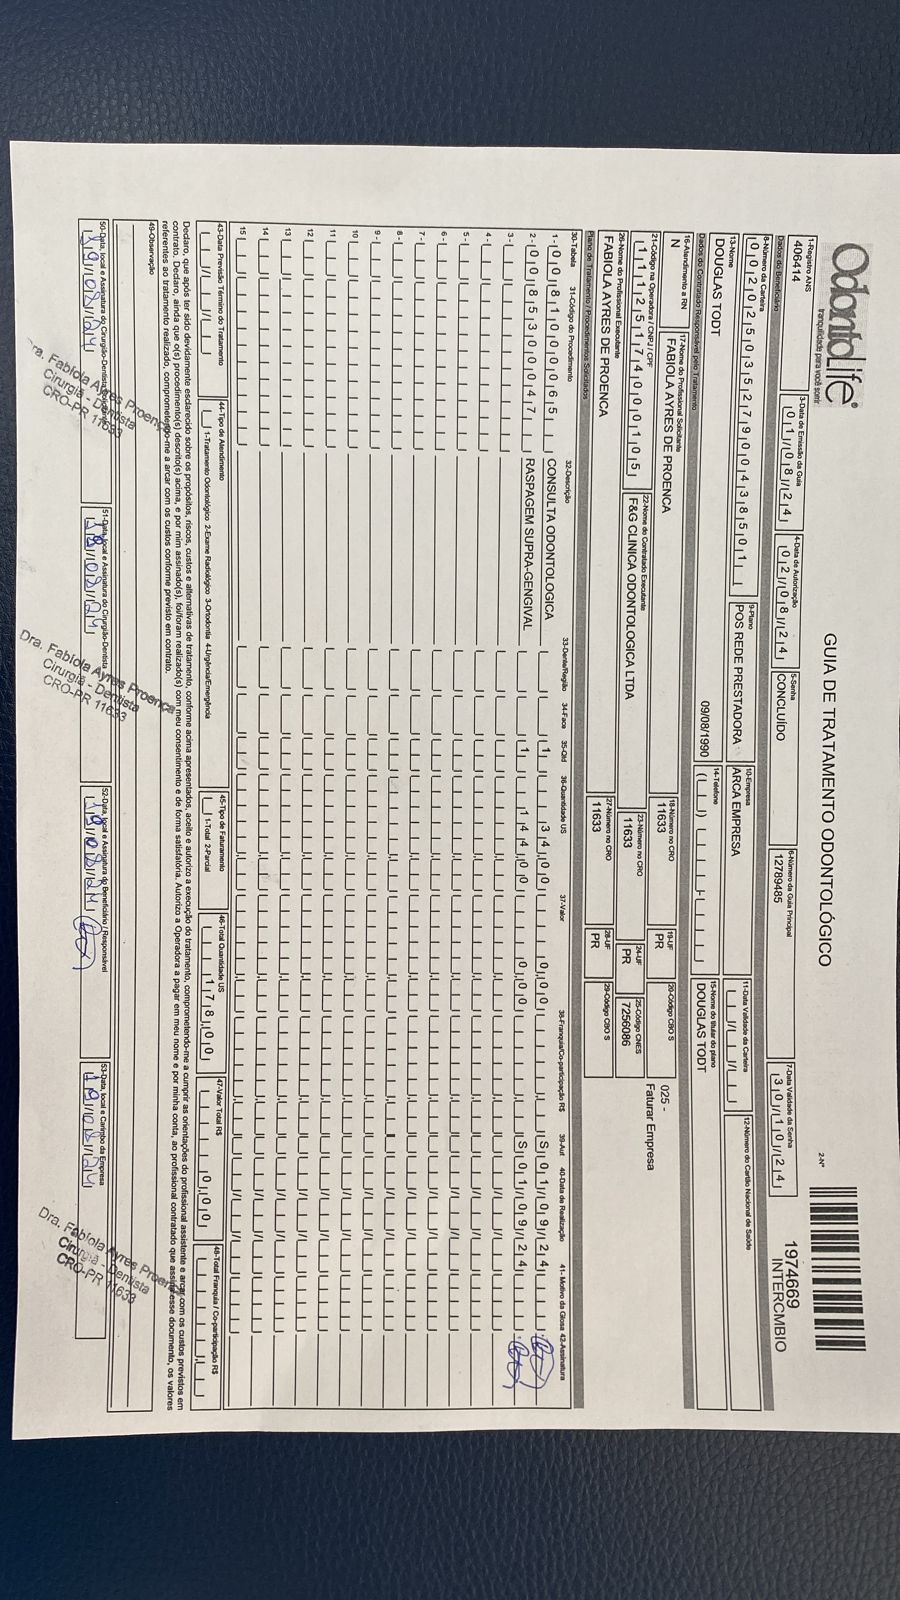 OdontoLife®
tranquilidade para você sorrir
GUIA DE TRATAMENTO ODONTOLÓGICO
2-Nº
1974669
INTERCMBIO
1-Registro ANS
406414
3-Data de Emissão da Guia
01/08/24
4-Data de Autorização
02/08/24
5-Senha
CONCLUÍDO
6-Número da Guia Principal
12789485
7-Data Validade da Senha
30/10/24
Dados do Beneficiário
8-Número da Carteira
00202503527900438501
9-Plano
POS REDE PRESTADORA
10-Empresa
ARCA EMPRESA
11-Data Validade da Carteira
12-Número do Cartão Nacional de Saúde
13-Nome
DOUGLAS TODT
09/08/1990
14-Telefone
15-Nome do titular do plano
DOUGLAS TODT
Dados do Contratado Responsável pelo Tratamento
16-Atendimento a RN
N
17-Nome do Profissional Solicitante
FABIOLA AYRES DE PROENCA
18-Número no CRO
11633
19-UF
PR
20-Código CBO S
025 -
Faturar Empresa
21-Código na Operadora / CNPJ / CPF
11125174000105
22-Nome do Contratado Executante
F&G CLINICA ODONTOLOGICA LTDA
23-Número no CRO
11633
24-UF
PR
25-Código CNES
7256086
26-Nome do Profissional Executante
FABIOLA AYRES DE PROENCA
27-Número no CRO
11633
28-UF
PR
29-Código CBO S
Plano de Tratamento / Procedimentos Solicitados
30-Tabela 31-Código do Procedimento 32-Descrição 33-Dente/Região 34-Face 35-Qtd 36-Quantidade US 37-Valor 38-Franquia/Co-participação R$ 39-Aut 40-Data de Realização 41-Motivo da Glosa 42-Assinatura
1- 00 81000065 CONSULTA ODONTOLOGICA 1 34,00 0,00 S 01/09/24
2- 00 85300047 RASPAGEM SUPRA-GENGIVAL 1 144,00 0,00 S 01/09/24
3-
4-
5-
6-
7-
8-
9-
10
11
12
13
14
15
43-Data Previsão Término do Tratamento
44-Tipo de Atendimento
1-Tratamento Odontológico 2-Exame Radiológico 3-Ortodontia 4-Urgência/Emergência
45-Tipo de Faturamento
1-Total 2-Parcial
46-Total Quantidade US
178,00
47-Valor Total R$
0,00
48-Total Franquia / Co-participação R$
Declaro, que após ter sido devidamente esclarecido sobre os propósitos, riscos, custos e alternativas de tratamento, conforme acima apresentados, aceito e autorizo a execução do tratamento, comprometendo-me a cumprir as orientações do profissional assistente e arcar com os custos previstos em
contrato. Declaro, ainda que o(s) procedimento(s) descrito(s) acima, e por mim assinado(s), foi/foram realizado(s) com meu consentimento e de forma satisfatória. Autorizo a Operadora a pagar em meu nome e por minha conta, ao profissional contratado que assina esse documento, os valores
referentes ao tratamento realizado, comprometendo-me a arcar com os custos conforme previsto em contrato.
49-Observação
50-Data, local e Assinatura do Cirurgião-Dentista
19/08/24
51-Data, local e Assinatura do Cirurgião-Dentista
19/08/24
52-Data, local e Assinatura do Beneficiário / Responsável
19/08/24
53-Data, local e Carimbo da Empresa
19/08/24
Dra. Fabíola Ayres Proença
Cirurgiã - Dentista
CRO-PR 11633
Dra. Fabíola Ayres Proença
Cirurgiã - Dentista
CRO-PR 11633
Dra. Fabíola Ayres Proença
Cirurgiã - Dentista
CRO-PR 11633